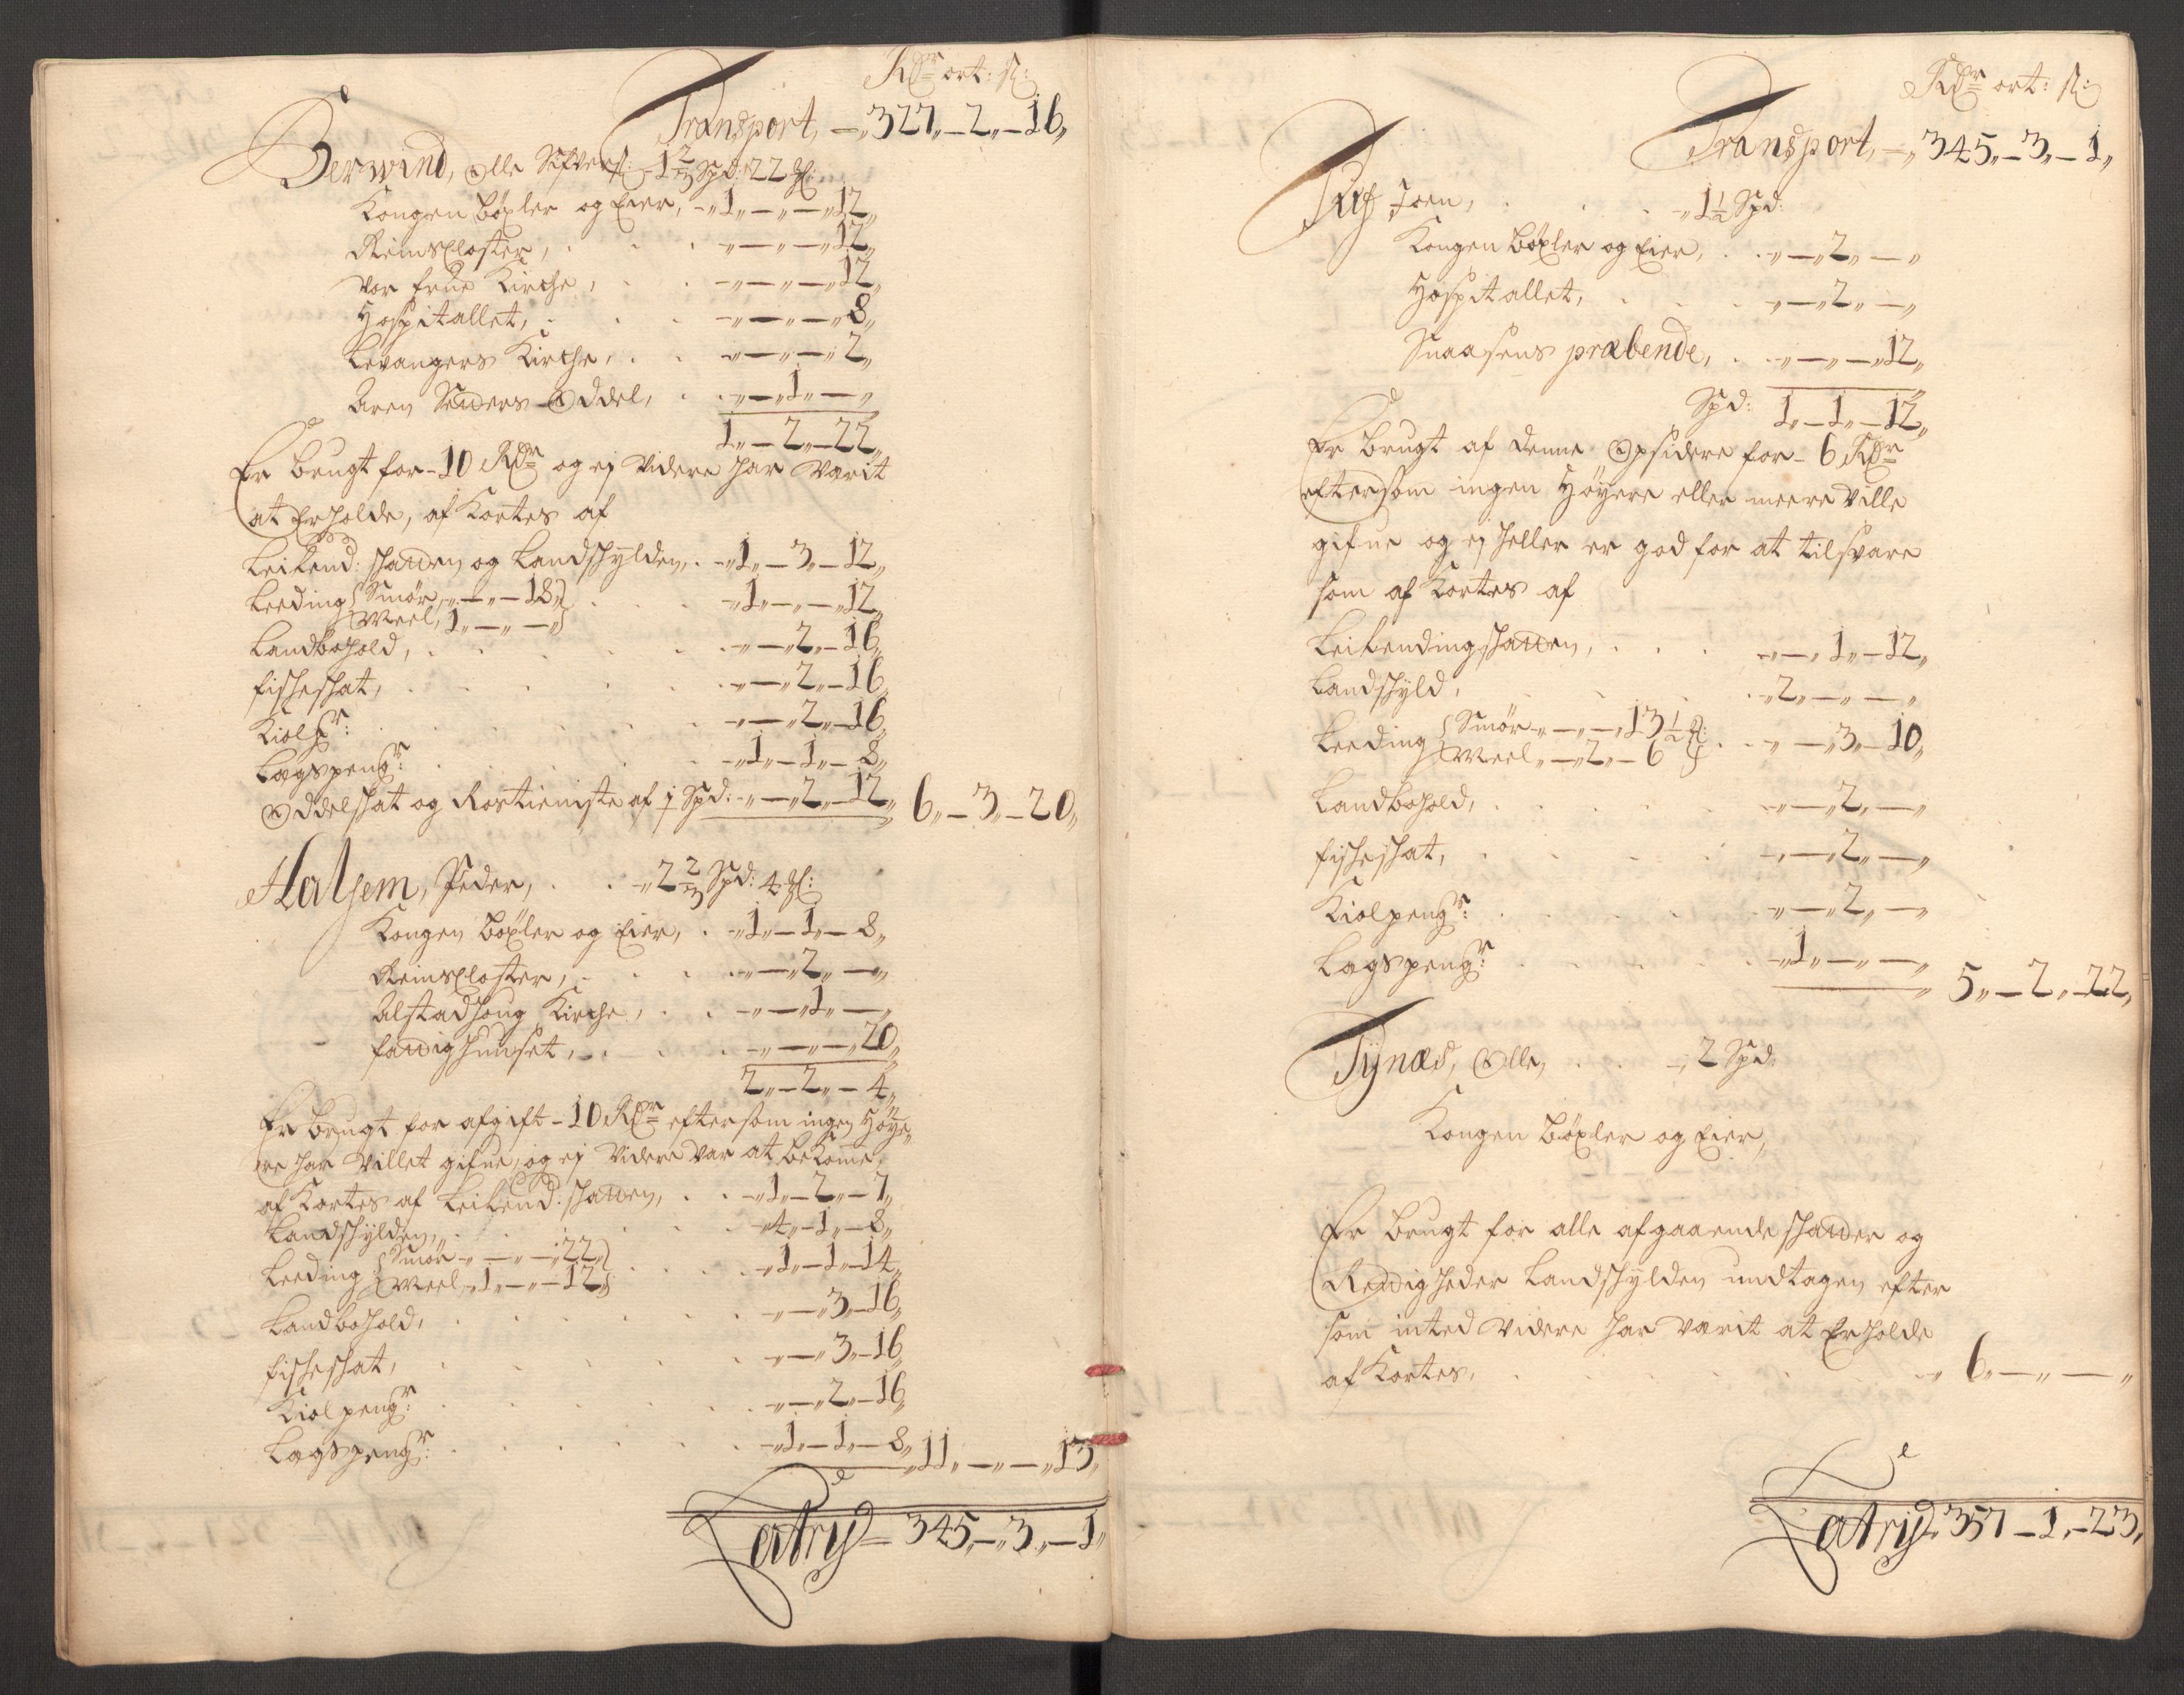 Rdr ort: s:
Transport, — 327„ — 2„ — 16„
Berwind, Olle Sifvers: — 1 2/3 Spd: 22 ℳl:
Kongen bøxler og Eier, — „1„ — „ — „12„
Reinsc​loster, „ — „ — „12„
Vor frue Kirche, „ — „ — „12„
Hospitallet, „ — „ — „8„
Levangers Kirche, „ — „ — „2„
Oddel, „ — „1„ — „
1„ — 2„ — 22„
Er brugt for — 10 Rdr og ej Videre har Varit
at Erholde, af Kortes af
Leilend: skatten og Landskylden, — „1„ — 3„ — 12„
Leeding { Smør, „ — „ — 18„ } — „1„ — „ — „12„
Meel, 1„ — „ — „
Landbohold, „ — „2„ — 16„
fischeskat, „ — „2„ — 16„
Kiolp:r: „ — „2„ — 16„
Lagspengr: „1„ — 1„ — 8„
Oddelskat og Rostieniste af 1 Spd: „ — „2„ — 12„ 6„ — 3„ — 20„
Halsem, Peder, — „2 2/3 Spd: 4 ℳl:
Kongen bøxler og Eier, — „1„ — 1„ — 8„
Reinscloster, „ — „2„ — „
Alstadhoug Kirche, „ — „1„ — „
fattighuuset, „ — „ — „20„
2„ — 2„ — 4„
Er brugt for afgift — 10 Rdr eftersom ingen Høye„
re har Villet gifue, og ej Videre var at bekomme,
af Kortes af Leilend: skatten, „1„ — 2„ — 7„
Landskylden, „4„ — 1„ — 8„
Leeding { Smør „ — „ — „22„ } „1„ — 1„ — 14„
Meel, „1„ — „ — 12„
Landbohold, „ — „3„ — 16„
fischeskat, „ — „3„ — 16„
Kiolpengr: „ — „2„ — 16„
Lagspengr: „1„ — 1„ — 8„ 11„ — „ — „13„
Latry — 345„ — 3„ — 1„
Rdr ort: s:
Transport, — „345„ — 3„ — 1„
Joen, — „1 1/2 Spd:
Kongen bøxler og Eier, „ — „2„ — „
Hospitallet, „ — „2„ — „
Snaasens præbende, „ — „ — „12„
Spd: 1„ — 1„ — 12„
Er brugt af denne Opsidere for — 6 Rdr
eftersom ingen Høyere eller meere Ville
gifue og ej heller er god for at tilsvare
som af Kortes af
Leilendingskatten, „ — „1„ — 12„
Landskyld, „2„ — „ — „
Leeding { Smør „ — „ — „13 1/2 ℳ: } „ — „3„ — 10„
Meel „ — „2„ — 6
Landbohold, „ — „2„ — „
fischeskat, „ — „2„ — „
Kiolpengr: „ — „2„ — „
Lagspengr: „1„ — „ — „ 5„ — 2„ — 22„
Tynæs, Olle, — „2 Spd:
Kongen bøxler og Eier,
Er brugt for alle afgaaende skatter og
Rettigheder Landskylden undtagen efter
som inted Videre har Varit at Erholde
af Kortes, „6„ — „ — „
Latry 357 — 1„ — 23„